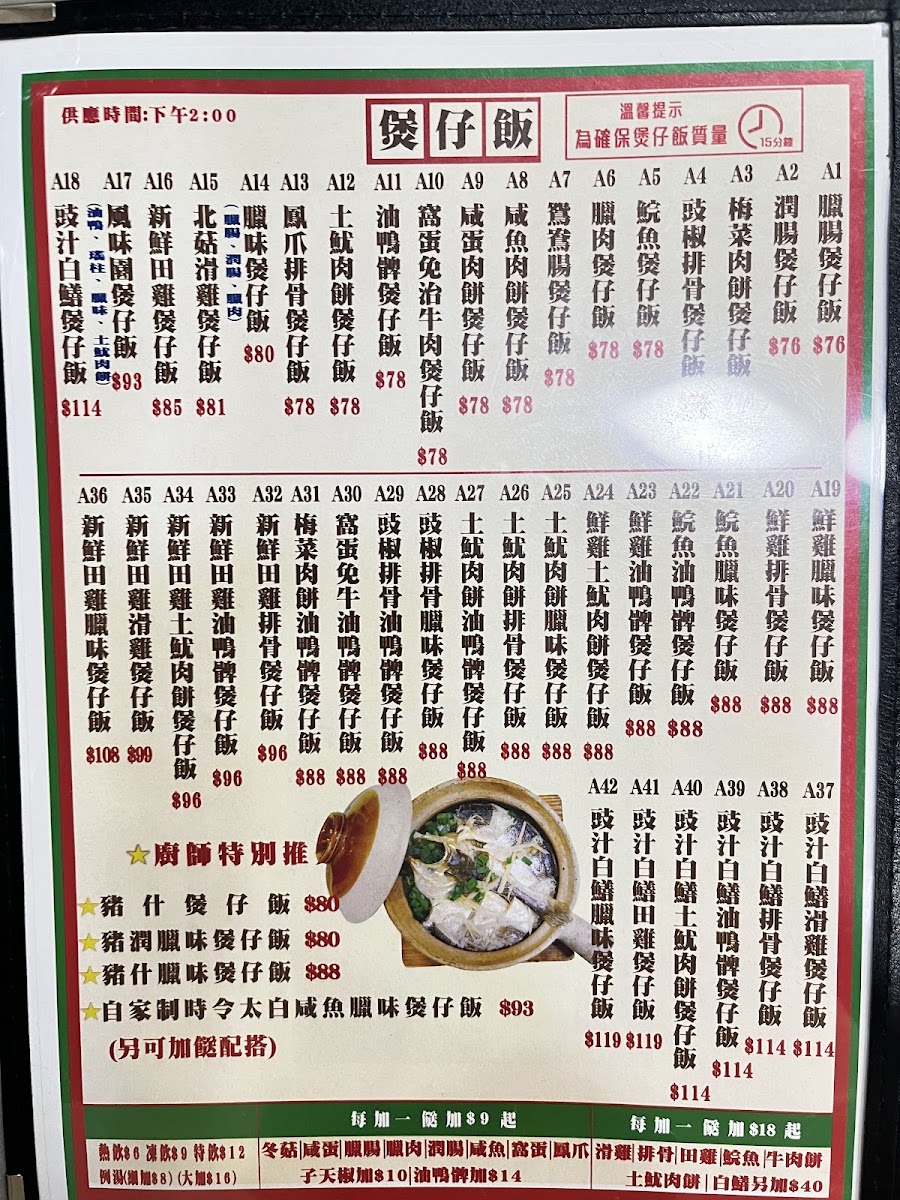 供應時間:下午2:00
煲仔飯
溫馨提示
為確保煲仔飯質量
15分鐘
A1 臘腸煲仔飯 $76
A2 潤腸煲仔飯 $76
A3 梅菜肉餅煲仔飯
A4 豉椒排骨煲仔飯
A5 鯇魚煲仔飯 $78
A6 臘肉煲仔飯 $78
A7 鴛鴦腸煲仔飯 $78
A8 咸魚肉餅煲仔飯 $78
A9 咸蛋肉餅煲仔飯 $78
A10 窩蛋免治牛肉煲仔飯 $78
A11 油鴨髀煲仔飯 $78
A12 土魷肉餅煲仔飯 $78
A13 鳳爪排骨煲仔飯 $78
A14 臘味煲仔飯 $80
(臘腸、潤腸、臘肉)
A15 北菇滑雞煲仔飯 $81
A16 新鮮田雞煲仔飯 $85
A17 風味園煲仔飯 $93
(油鴨、瑤柱、臘味、土魷肉餅)
A18 豉汁白鱔煲仔飯 $114
A19 鮮雞臘味煲仔飯 $88
A20 鮮雞排骨煲仔飯 $88
A21 鯇魚臘味煲仔飯 $88
A22 鯇魚油鴨髀煲仔飯 $88
A23 鮮雞油鴨髀煲仔飯 $88
A24 鮮雞土魷肉餅煲仔飯 $88
A25 土魷肉餅臘味煲仔飯 $88
A26 土魷肉餅排骨煲仔飯 $88
A27 土魷肉餅油鴨髀煲仔飯 $88
A28 豉椒排骨臘味煲仔飯 $88
A29 豉椒排骨油鴨髀煲仔飯 $88
A30 窩蛋免牛油鴨髀煲仔飯 $88
A31 梅菜肉餅油鴨髀煲仔飯 $88
A32 新鮮田雞排骨煲仔飯 $96
A33 新鮮田雞油鴨髀煲仔飯 $96
A34 新鮮田雞土魷肉餅煲仔飯 $96
A35 新鮮田雞滑雞煲仔飯 $99
A36 新鮮田雞臘味煲仔飯 $108
A37 豉汁白鱔滑雞煲仔飯 $114
A38 豉汁白鱔排骨煲仔飯 $114
A39 豉汁白鱔油鴨髀煲仔飯 $114
A40 豉汁白鱔土魷肉餅煲仔飯 $114
A41 豉汁白鱔田雞煲仔飯 $119
A42 豉汁白鱔臘味煲仔飯 $119
廚師特別推
豬什煲仔飯 $80
豬潤臘味煲仔飯 $80
豬什臘味煲仔飯 $88
自家制時令太白咸魚臘味煲仔飯 $93
(另可加餸配搭)
熱飲$6 凍飲$9 特飲$12
例湯(細加$8) (大加$16)
每加一餸加$9起
冬菇|咸蛋|臘腸|臘肉|潤腸|咸魚|窩蛋|鳳爪
子天椒加$10|油鴨髀加$14
每加一餸加$18起
滑雞|排骨|田雞|鯇魚|牛肉餅
土魷肉餅|白鱔另加$40